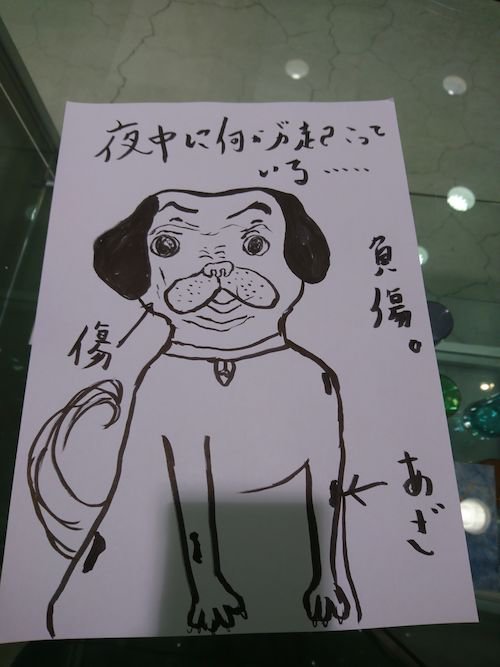 夜中に何が起こって
いる……
負傷。
傷
あざ